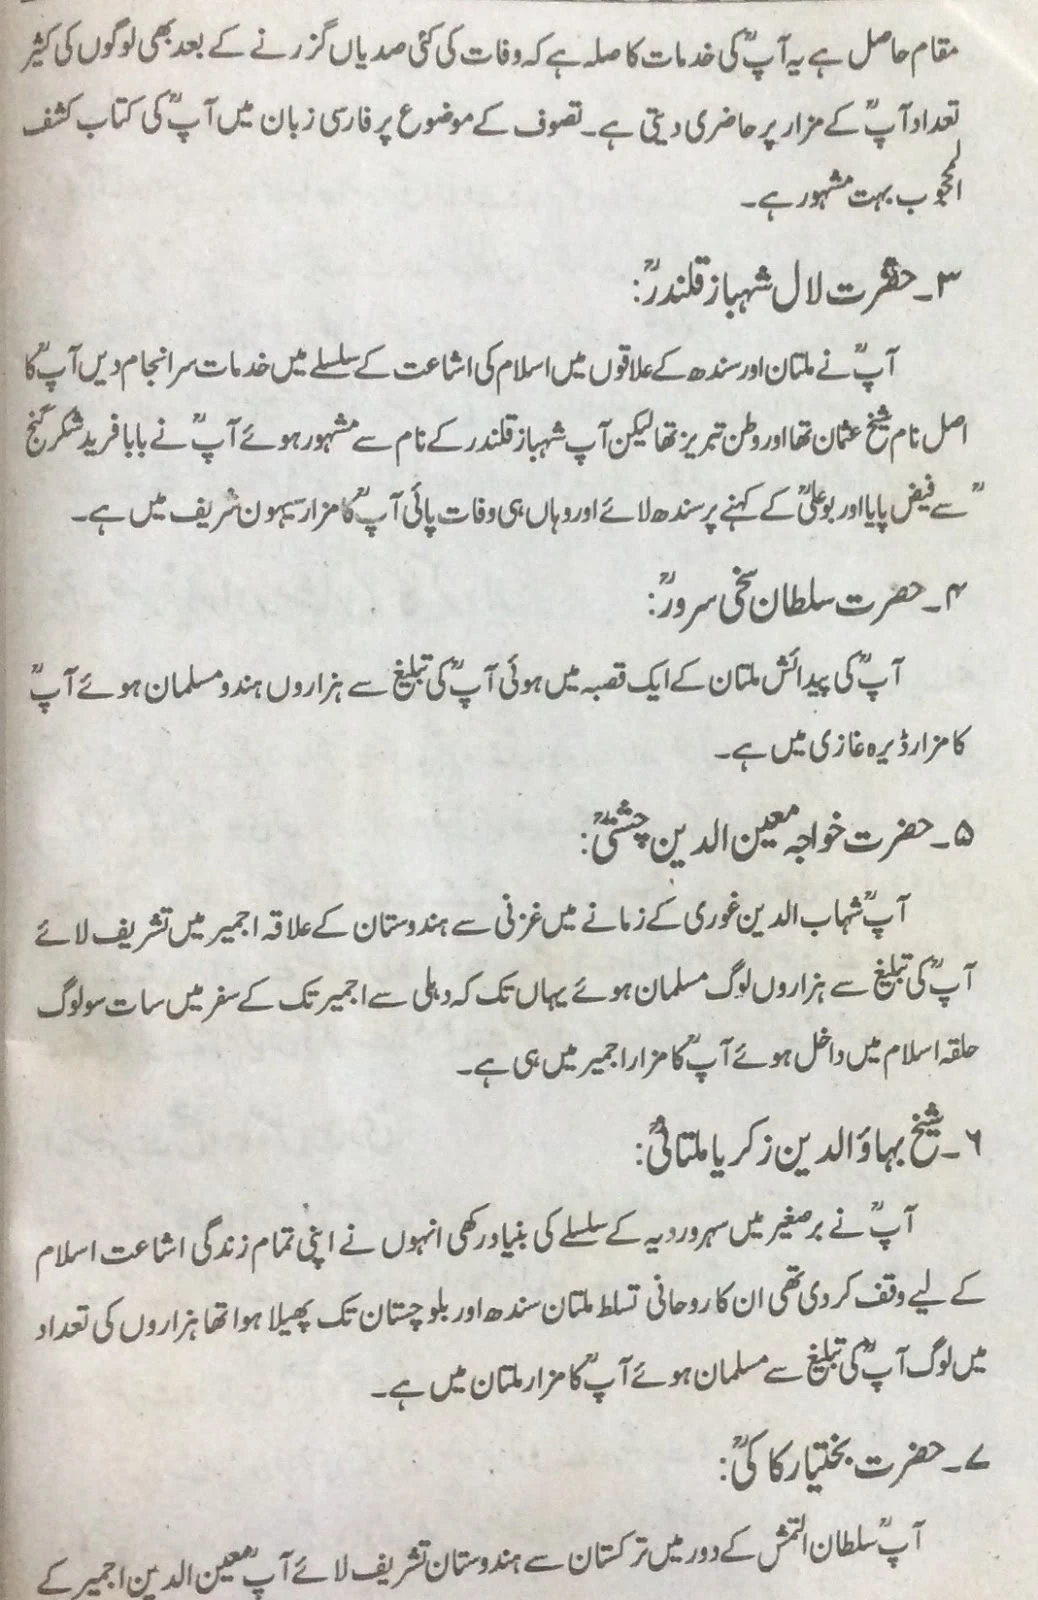 مقام حاصل ہے یہ آپؒ کی خدمات کا صلہ ہے کہ وفات کی کئی صدیاں گزرنے کے بعد بھی لوگوں کی کثیر
تعداد آپؒ کے مزار پر حاضری دیتی ہے۔ تصوف کے موضوع پر فارسی زبان میں آپؒ کی کتاب کشف
المحجوب بہت مشہور ہے۔
۳۔ حضرت لال شہباز قلندرؒ:
آپؒ نے ملتان اور سندھ کے علاقوں میں اسلام کی اشاعت کے سلسلے میں خدمات سرانجام دیں آپؒ کا
اصل نام شیخ عثمان تھا اور وطن تبریز تھا لیکن آپ شہباز قلندر کے نام سے مشہور ہوئے آپؒ نے بابا فرید شکر گنج
ؒ سے فیض پایا اور بوعلیؒ کے کہنے پر سندھ لائے اور وہاں ہی وفات پائی آپؒ کا مزار سیہون شریف میں ہے۔
۴۔ حضرت سلطان سخی سرورؒ:
آپؒ کی پیدائش ملتان کے ایک قصبہ میں ہوئی آپؒ کی تبلیغ سے ہزاروں ہندو مسلمان ہوئے آپؒ
کا مزار ڈیرہ غازی میں ہے۔
۵۔ حضرت خواجہ معین الدین چشتیؒ:
آپؒ شہاب الدین غوری کے زمانے میں غزنی سے ہندوستان کے علاقہ اجمیر میں تشریف لائے
آپؒ کی تبلیغ سے ہزاروں لوگ مسلمان ہوئے یہاں تک کہ دہلی سے اجمیر تک کے سفر میں سات سو لوگ
حلقہ اسلام میں داخل ہوئے آپؒ کا مزار اجمیر میں ہی ہے۔
۶۔ شیخ بہاؤ الدین زکریا ملتانیؒ:
آپؒ نے برصغیر میں سہروردیہ کے سلسلے کی بنیاد رکھی انہوں نے اپنی تمام زندگی اشاعت اسلام
کے لیے وقف کر دی تھی ان کا روحانی تسلط ملتان سندھ اور بلوچستان تک پھیلا ہوا تھا ہزاروں کی تعداد
میں لوگ آپؒ کی تبلیغ سے مسلمان ہوئے آپؒ کا مزار ملتان میں ہے۔
۷۔ حضرت بختیار کاکیؒ:
آپؒ سلطان التمش کے دور میں ترکستان سے ہندوستان تشریف لائے آپؒ معین الدین اجمیر کے